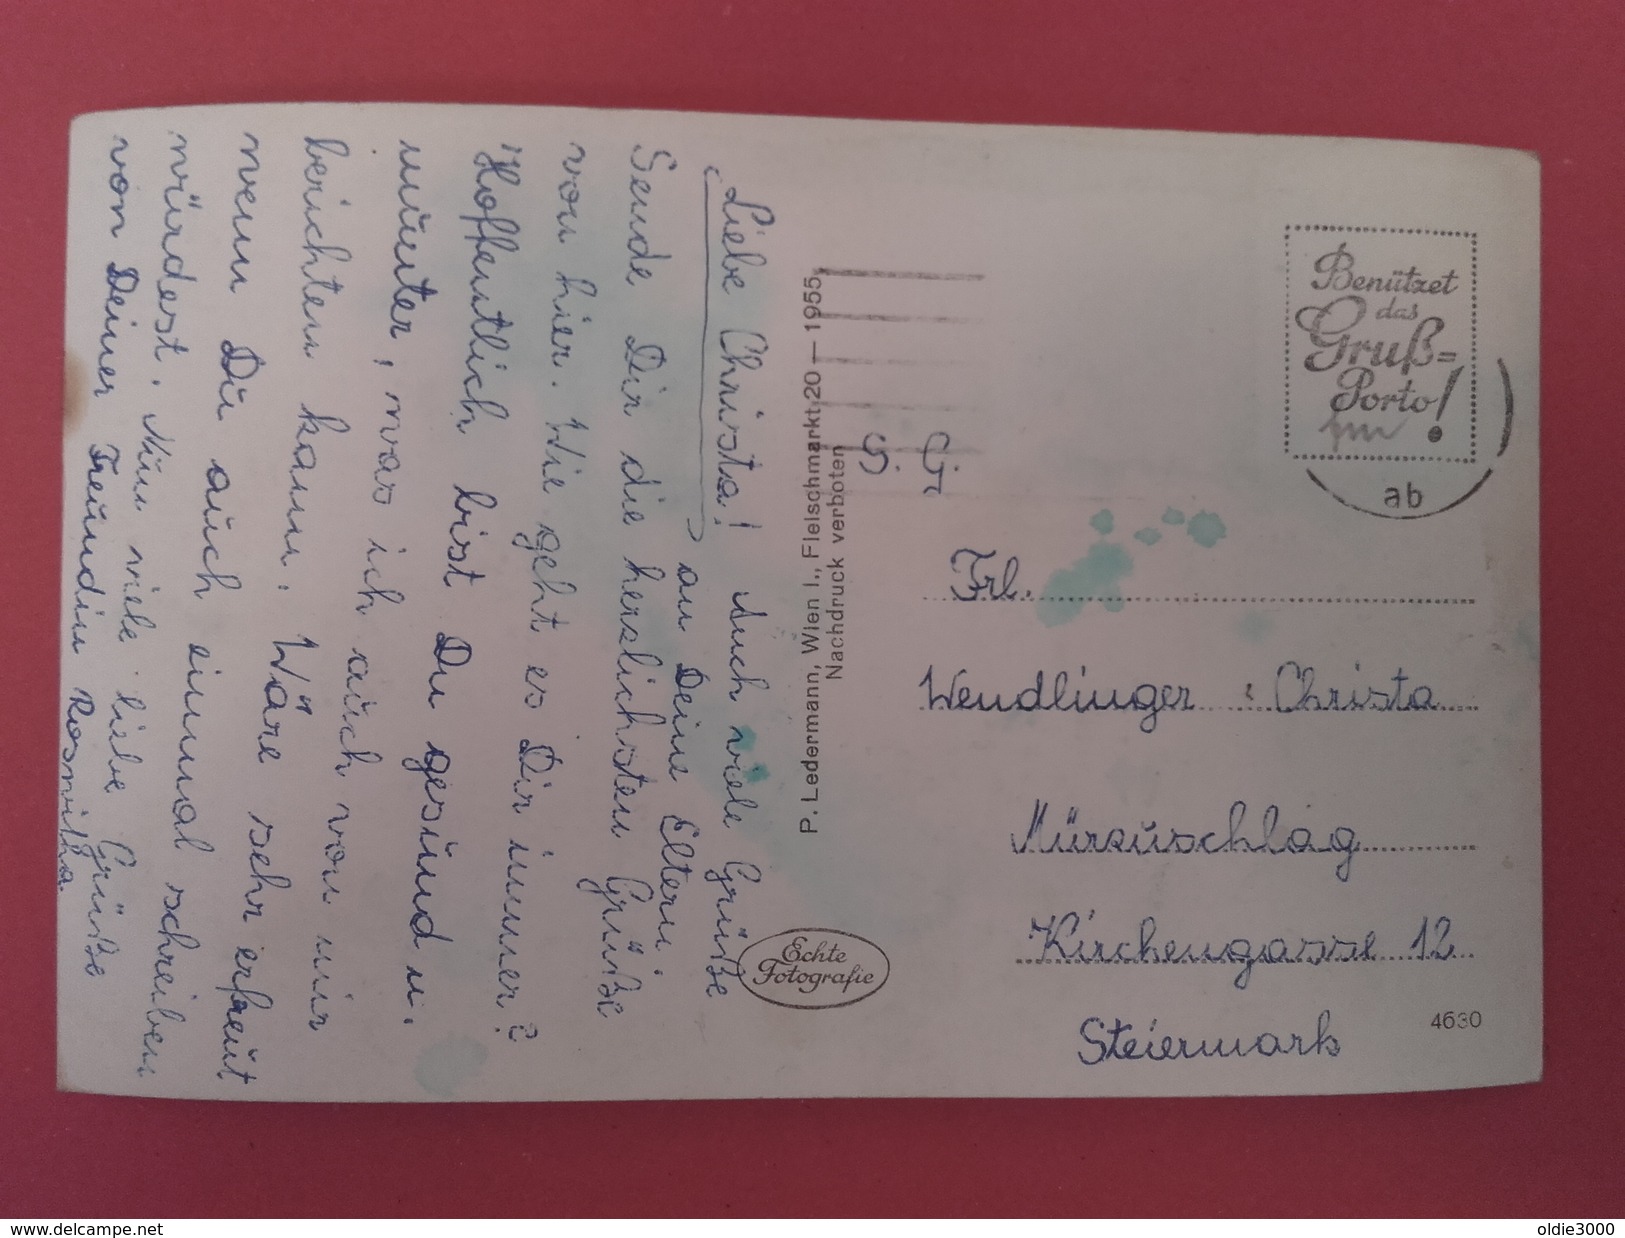 Liebe Christa! Auch viele Grüße
an Deine Eltern.
Sende Dir die herzlichsten Grüße
von hier. Wie geht es Dir immer?
Hoffentlich bist Du gesund u.
munter, was ich auch von mir
berichten kann. Wäre sehr erfreut
wenn Du auch einmal schreiben
würdest. Nun viele liebe Grüße
von Deiner Freundin Roswitha
P. Ledermann, Wien I., Fleischmarkt 20 — 1955
Nachdruck verboten
Echte
Fotografie
S. G.
Benützet
das
Gruß=
Porto!
ab
Frl.
Wendlinger Christa
Mürzuschlag
Kirchengasse 12
Steiermark
4630
www.delcampe.net
oldie3000